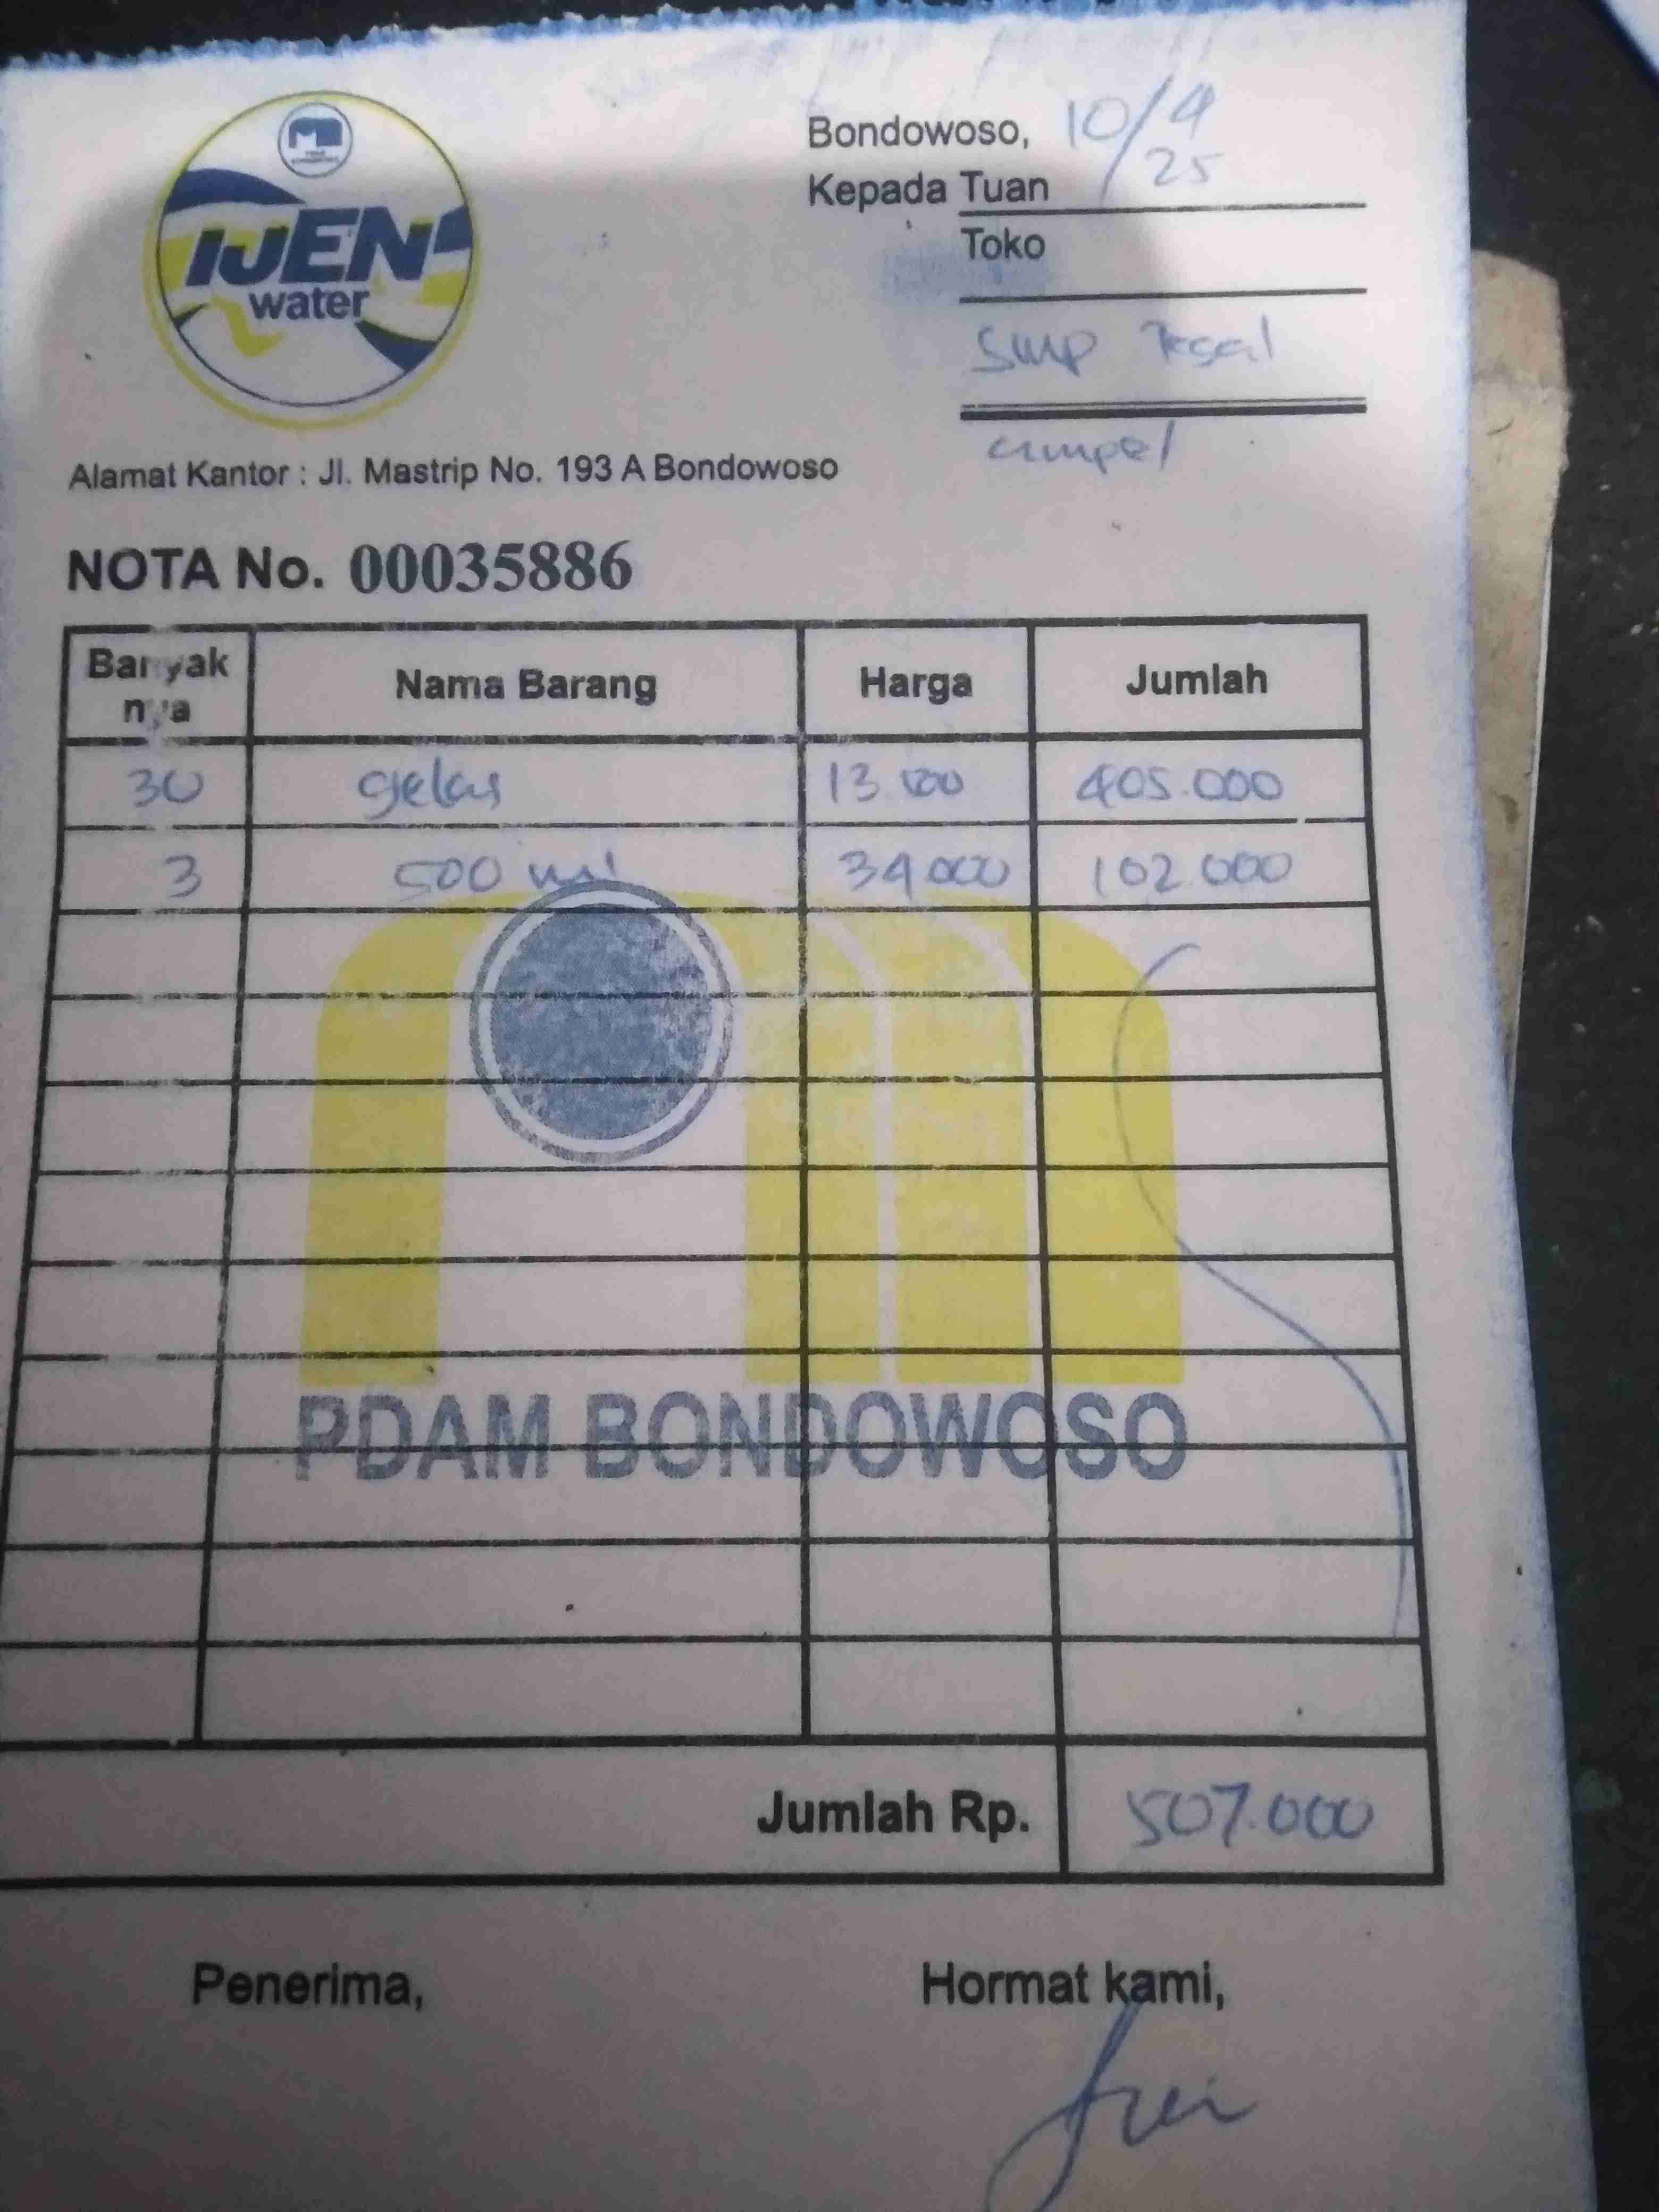 IJEN
water
Bondowoso, 10/4
25
Kepada Tuan
Toko
SMP Tegal
Alamat Kantor : Jl. Mastrip No. 193 A Bondowoso
NOTA No. 00035886
Banyak nya Nama Barang Harga Jumlah
30 gelas 13.500 405.000
3 500 ml 34.000 102.000
PDAM BONDOWOSO
Jumlah Rp. 507.000
Penerima, Hormat kami,